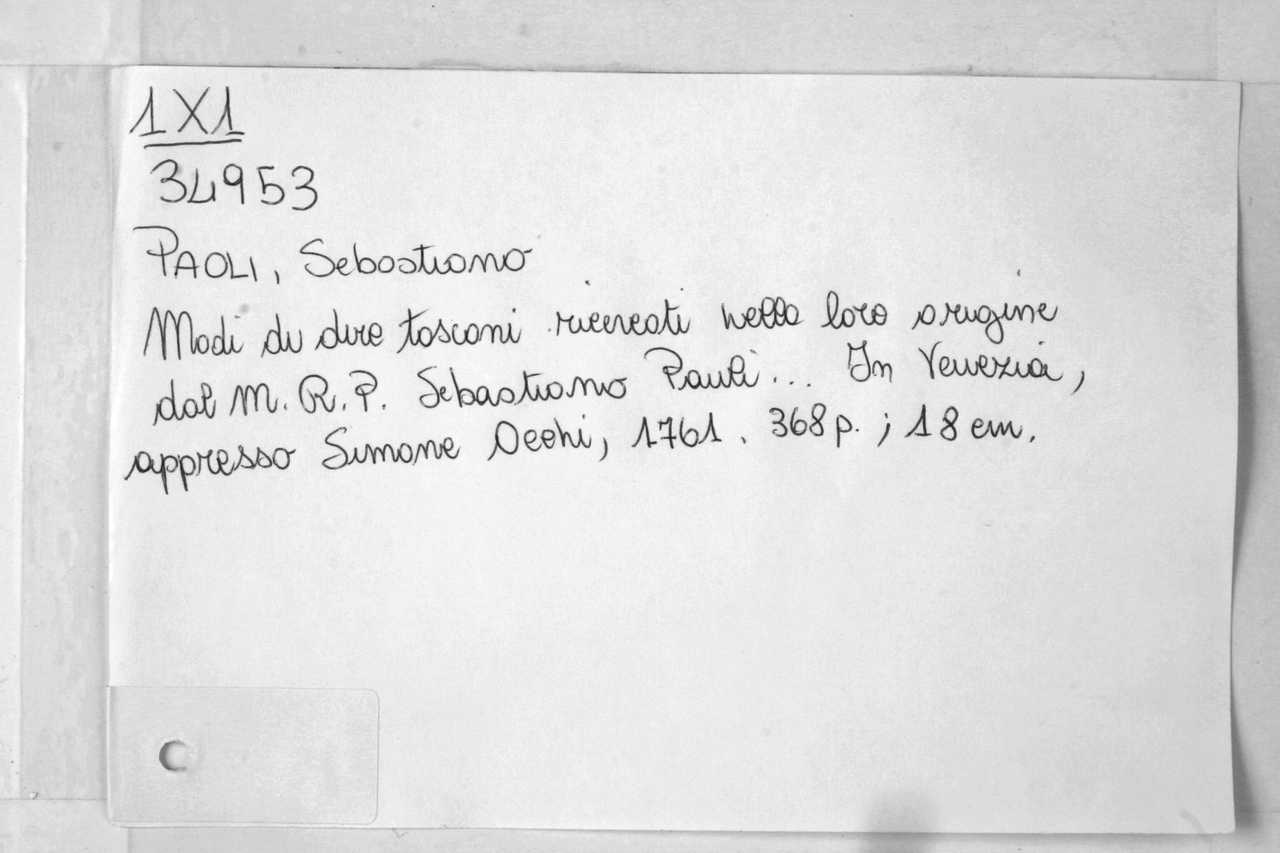 1X1
34953
PAOLI, Sebastiano
Modi di dire toscani ricercati nella loro origine
dal M. R. P. Sebastiano Pauli... In Venezia,
appresso Simone Occhi, 1761. 368 p. ; 18 cm.